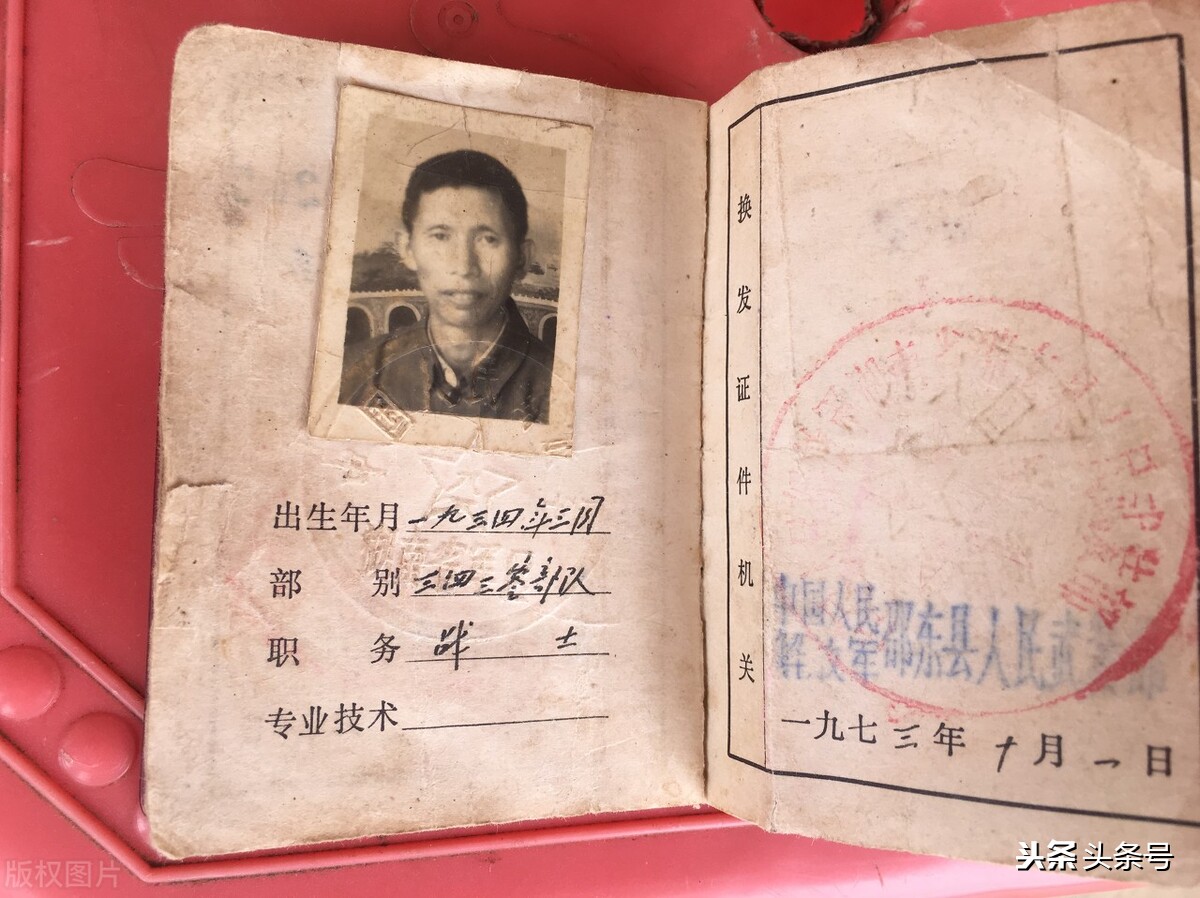 出生年月 一九三四年三月
部别 三四三零部队
职务 战士
专业技术
换发证件机关
中国人民
解放军
邵东县人民武装部
一九七三年十月一日
版权图片
头条 头条号